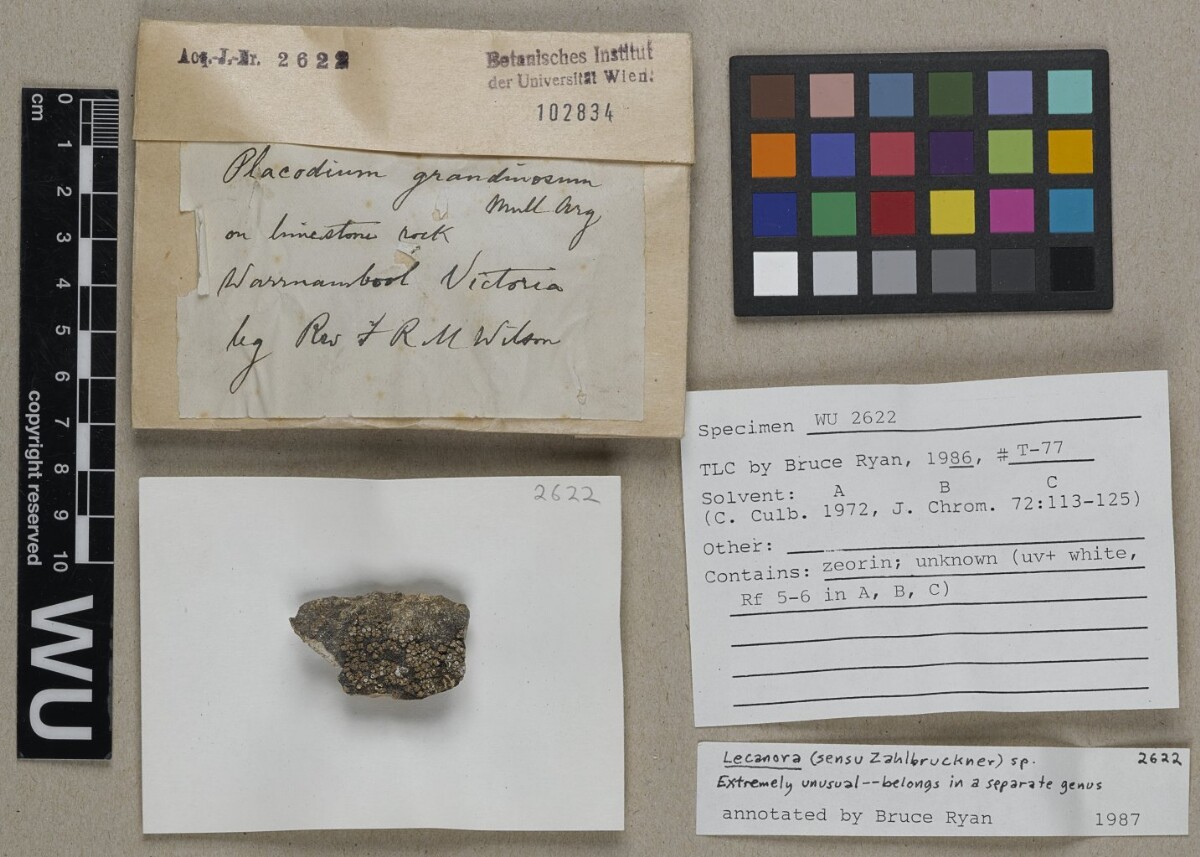 Acq.-J.-Nr. 2622
Botanisches Institut
der Universität Wien.
102834
Placodium grandinosum
Mull Arg
on limestone rock
Warrnambool Victoria
leg Rev F R M Wilson
cm
0
1
2
3
4
5
6
7
8
9
10
copyright reserved
WU
2622
Specimen WU 2622
TLC by Bruce Ryan, 1986, # T-77
Solvent: A B C
(C. Culb. 1972, J. Chrom. 72:113-125)
Other:
Contains: zeorin; unknown (uv+ white,
Rf 5-6 in A, B, C)
Lecanora (sensu Zahlbruckner) sp. 2622
Extremely unusual--belongs in a separate genus
annotated by Bruce Ryan 1987